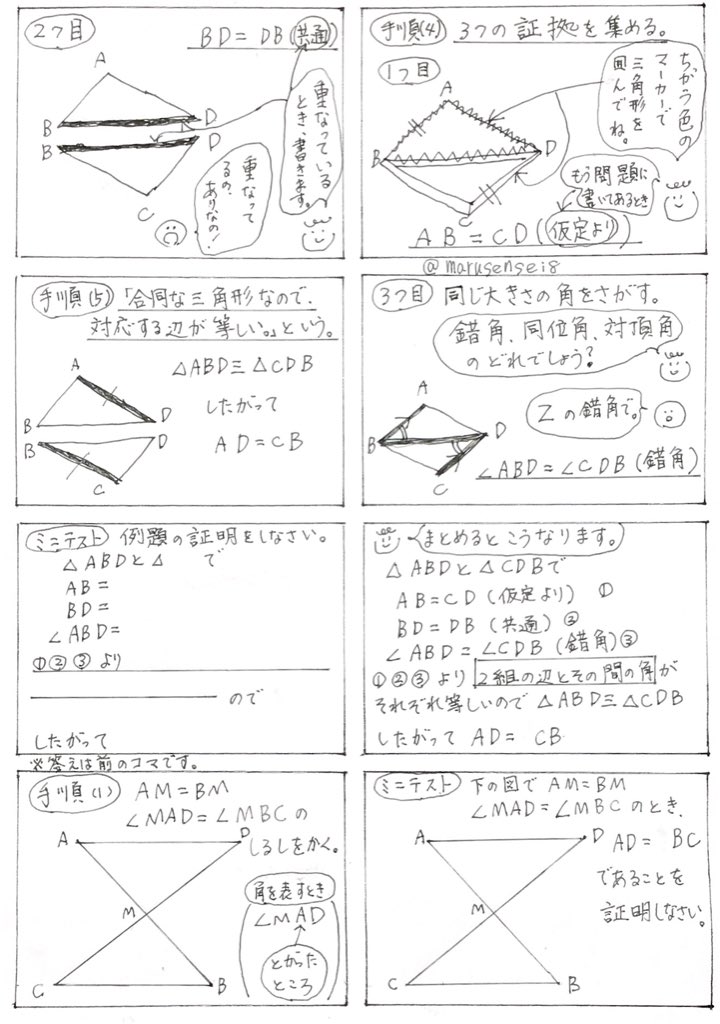 手順(4) 3つの証拠を集める。
1つ目
ちがう色の
マーカーで
三角形を
囲んでね。
A
B
D
C
もう問題に
書いてあるとき
AB=CD(仮定より)
@marusensei8
2つ目
BD=DB(共通)
A
B
D
B
D
C
重なっている
とき、書きます。
重なって
るの、
ありなの!
3つ目 同じ大きさの角をさがす。
錯角、同位角、対頂角
のどれでしょう?
A
B
D
C
Zの錯角で。
∠ABD=∠CDB(錯角)
手順(5) 「合同な三角形なので、
対応する辺が等しい。」という。
△ABD≡△CDB
したがって
AD=CB
A
B
D
B
D
C
まとめるとこうなります。
△ABDと△CDBで
AB=CD(仮定より) ①
BD=DB(共通)②
∠ABD=∠CDB(錯角)③
①②③より 2組の辺とその間の角が
それぞれ等しいので△ABD≡△CDB
したがって AD= CB
ミニテスト 例題の証明をしなさい。
△ABDと△ で
AB=
BD=
∠ABD=
①②③より
ので
したがって
※答えは前のコマです。
ミニテスト 下の図で AM=BM
∠MAD=∠MBCのとき、
AD= BC
であることを
証明しなさい。
A
D
M
C
B
手順(1) AM=BM
∠MAD=∠MBCの
しるしをかく。
A
D
M
C
B
角を表すとき
∠MAD
とがった
ところ